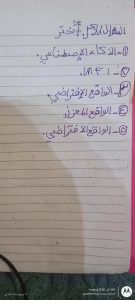 السؤال الأول / أختر
١- الذكاء الإصطناعي.
٣- الواقع الإفتراضي.
٤- الواقع المعزز
٥- الواقع الافتراضي.